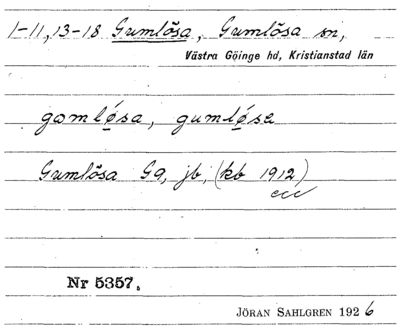 1-11, 13-18 Gumlösa, Gumlösa sn,
Västra Göinge hd, Kristianstad län
gomlǿsa, gumlǿsa
Gumlösa G9, jb, (kb 1912)
Nr 5357.
JÖRAN SAHLGREN 1926